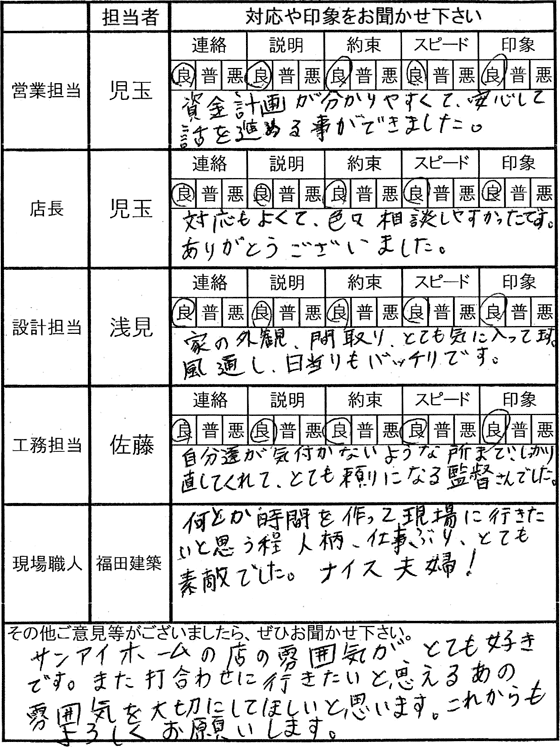 担当者 対応や印象をお聞かせ下さい
営業担当 児玉
連絡 説明 約束 スピード 印象
良 普 悪 良 普 悪 良 普 悪 良 普 悪 良 普 悪
資金計画が分かりやすくて、安心して
話を進める事ができました。
店長 児玉
連絡 説明 約束 スピード 印象
良 普 悪 良 普 悪 良 普 悪 良 普 悪 良 普 悪
対応もよくて、色々相談しやすかったです。
ありがとうございました。
設計担当 浅見
連絡 説明 約束 スピード 印象
良 普 悪 良 普 悪 良 普 悪 良 普 悪 良 普 悪
家の外観、間取り、とても気に入って
風通し、日当りもバッチリです。
工務担当 佐藤
連絡 説明 約束 スピード 印象
良 普 悪 良 普 悪 良 普 悪 良 普 悪 良 普 悪
自分達が気付かないような所まで、しっかり
直してくれて、とても頼りになる監督さんでした。
現場職人 福田建築
何とか時間を作って現場に行きた
いと思う程 人柄、仕事ぶり、とても
素敵でした。 ナイス夫婦!
その他ご意見等がございましたら、ぜひお聞かせ下さい。
サンアイホームの店の雰囲気が、とても好き
です。また打合わせに行きたいと思えるあの
雰囲気を大切にしてほしいと思います。これからも
よろしくお願いします。